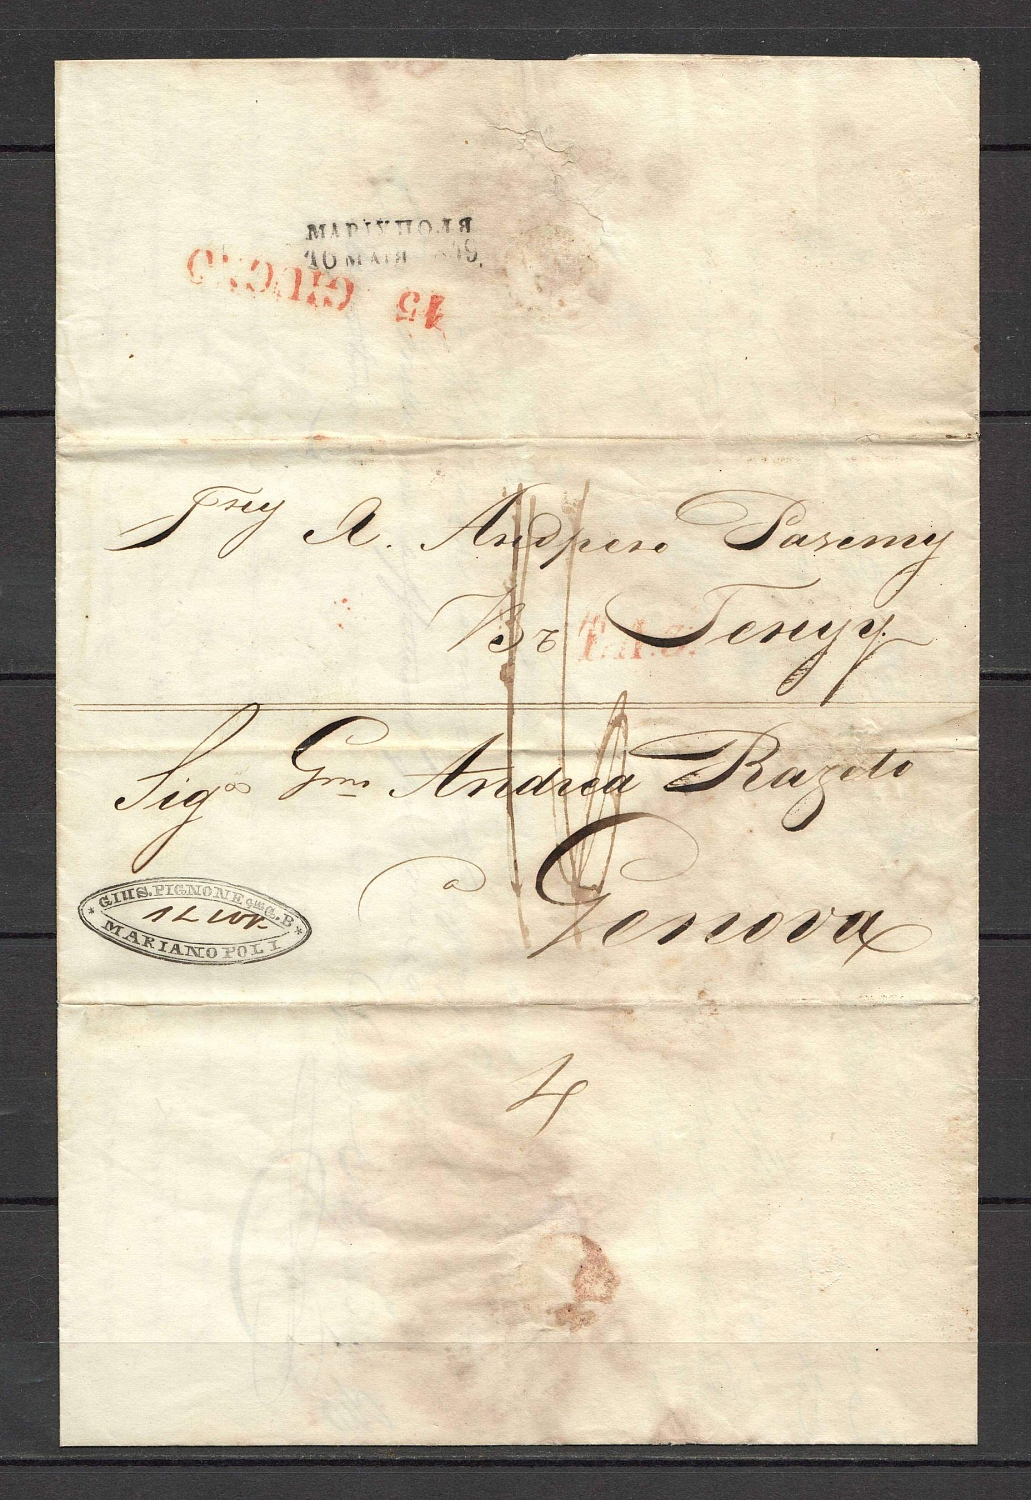 МАРІУПОЛЯ
16 МАІЯ
15 GIUGNO
Гну А. Андрею Разету
Въ Геную
T.A.S.
Sigr Gmo Andrea Razeto
a Genova
GIUS. PIGNONE qm G. B
MARIANOPOLI
4